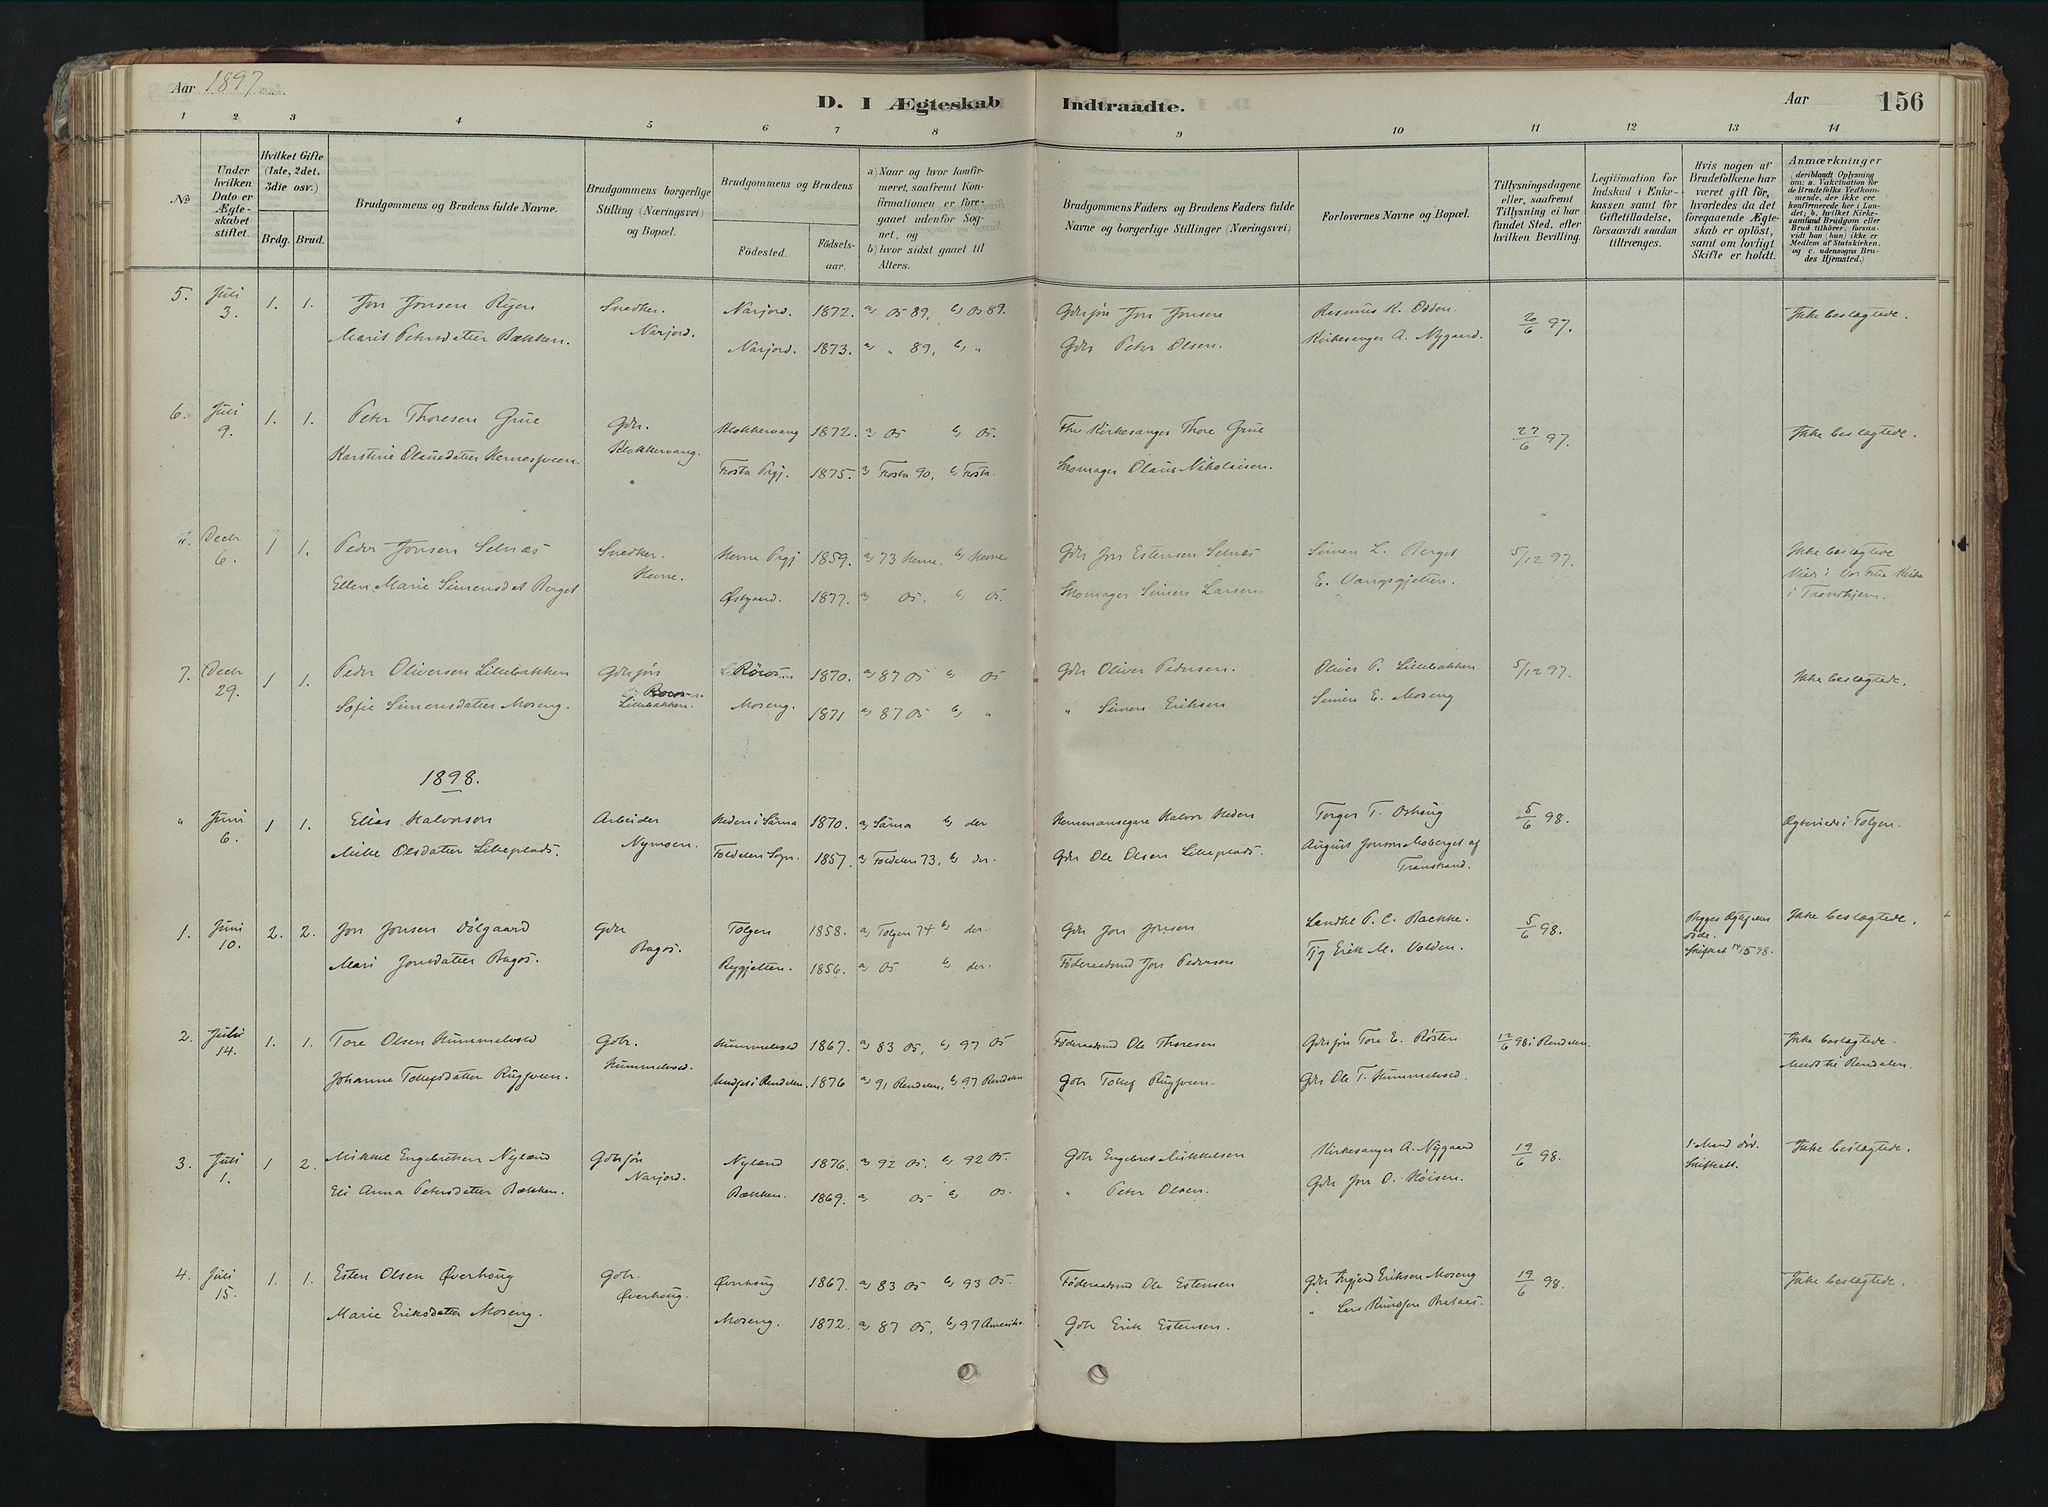 Aar 1897
D. I Ægteskab Indtraadte.
Aar 156
1 2 3 4 5 6 7 8 9 10 11 12 13 14
No
Under hvilken Dato er Ægteskabet stiftet.
Hvilket Gifte (1ste, 2det, 3die osv.)
Brdg. Brud.
Brudgommens og Brudens fulde Navne.
Brudgommens borgerlige Stilling (Næringsvei) og Bopæl.
Brudgommens og Brudens
Fødested. Fødselsaar.
a) Naar og hvor konfirmeret, saafremt Konfirmationen er foregaaet udenfor Sognet, og
b) hvor sidst gaaet til Alters.
Brudgommens Faders og Brudens Faders fulde Navne og borgerlige Stillinger (Næringsvei)
Forlovernes Navne og Bopæl.
Tillysningsdagene eller, saafremt Tillysning ei har fundet Sted, efter hvilken Bevilling.
Legitimation for Indskud i Enkekassen samt for Giftetilladelse, forsaavidt saadan tiltrænges.
Hvis nogen af Brudefolkene har været gift før, hvorledes da det foregaaende Ægteskab er opløst, samt om lovligt Skifte er holdt.
Anmærkninger (deriblandt Oplysning om: a. Vakcination for de Brudefolks Vedkommende, der ikke ere konfirmerede her i Landet; b. hvilket Kirkesamfund Brudgom eller Brud tilhører, forsaavidt han (hun) ikke er Medlem af Statskirken, og c. udensogns Brudes Hjemsted.)
5. Juli 3. 1. 1. Jon Jonsen Ryen Snedker. Narjord. 1872. a, Os 89, b, Os 89. Gdrsøn Jon Jonsen Rasmus K. Odden. 20/6 97. Ikke beslægtede.
Marit Petersdatter Bækken. Narjord. Narjord. 1873. a, " 89, b, " Gdr Peter Olsen. Kirkesanger A. Nygaard.
6. Juli 9. 1. 1. Peter Thoresen Grue Gdr. Klokkervang 1872. a, Os b, Os. Fhv Kirkesanger Thore Grue 27/6 97. Ikke beslægtede.
Karstine Olausdatter Klokkervang. Frosta Prgj. 1875. a, Frosta 90, b, Frosta. Skomager Olaus Nikolaisen.
Decbr 6. 1 1. Peder Jonsen Selnæs Snedker. Hevne Prgj 1859. a, 73 Hevne. b, Hevne Gdr Jon Estensen Selnæs Simen L. Berget 5/12 97. Ikke beslægtede
Ellen Marie Simensdat Berget Hevne. Østgaard. 1877. a, Os, b, Os. Skomager Simen Larsen. E. Vangsgjetten. Viede i Vor Frue Kirke
i Trondhjem.
7. Decbr 29. 1 1. Peder Oliversen Lillebakken Gdrsøn Røros 1870. a, 87 Os b, Os Gdr Oliver Pedersen. Oliver P. Lillebakken 5/12 97. Ikke beslægtede.
Sofie Simensdatter Moseng. Lillebakken. Moseng. 1871 a, 87 Os b, " " Simen Eriksen Simen E. Moseng
1898.
" Juni 6. 1 1. Elias Halvorson Arbeider Heden i Särna 1870. a, Särna b, der Hemmansegare Halvor Heden Torger T. 5/6 98. Tolgen.
Olsdatter Lilleplads. Nymoen. Foldalen Sogn. 1857. a, Foldalen 73, b, der. Gdr Ole Olsen Lilleplads. August Jonson Moberget af
Transtrand.
1. Juni 10. 2. 2. Jon Jonsen Dølgaard Gdr Tolgen 1858. a, Tolgen 74 b, der. Gdr Jon Jonsen Landhl P. C. Bakke. 5/6 98. Begges Ægtefeller døde. Ikke beslægtede.
Mari Jonsdatter Bagos. Bagos. Rygjetten. 1856. a, Os b, der. Føderaadsmd Jon Pedersen Erik M. Volden. Skiftet 14/5 98.
2. Juli 14. 1. 1. Tore Olsen Hummelvold Gdbr. Hummelvold 1867. a, 83 Os, b, 97 Os Føderaadsmd Ole Thoresen Gdrsøn Tore E. Røsten 12/6 98 i Rendalen. Ikke beslægtede.
Johanne Tollefsdatter Rugsveen. Hummelvold. Rendalen. 1876 a, 91 Rendalen, b, 97 Rendalen Gdbr Tollef Rugsveen. Gdr Ole T. Hummelvold. Rendalen.
3. Juli 1. 1 2. Mikkel Engebretsen Nyland Gdbrsøn Nyland 1876. a, 92 Os, b, 92 Os. Gdbr Engebret Mikkelsen Kirkesanger A. Nygaard 19/6 98. 1 Mand død. Ikke beslægtede.
Eli Anna Petersdatter Bækken. Narjord. Bækken. 1869. a, Os b, Os. " Peter Olsen. Gdr Jon O. Høisen. Skiftet.
4. Juli 15. 1. 1. Esten Olsen Øverhoug Gdbr. Øverhoug 1867. a, 83 Os b, 93 Os. Føderaadsmd Ole Estensen Gdbr Eriksen Moseng 19/6 98. Ikke beslægtede.
Marie Eriksdatter Moseng. Øverhoug. Moseng. 1872. a, 87 Os, b, 97 Amerika. Gdbr Erik Estensen. " Lars